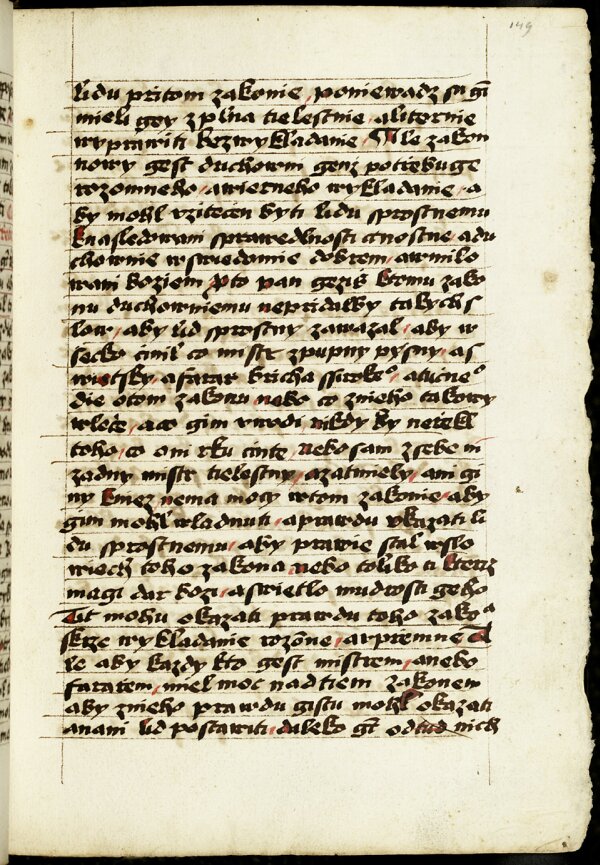 149
lidu pritom zakonie / poniewadz su gi
mieli goy zplna tielestnie aliternie
wyprawiti bezwykladanie / Ale zakon
nowy gest duchowni genz potrebuge
rozomneho / awierneho wykladanie / a
by mohl vzitecen byti lidu sprostnemu
knasledowani sprawedlnosti ctnostne / adu
chownie wswiedomie dobrem / awmilo
wani boziem / pto pan gezis ktomu zako
nu duchowniemu nepridalby takychs
low / aby lid sprostny zawazal / aby w
secko cinil co mistr zpupny pysny / as
wietsky / afarar bricha ssiroke° / atucne°
die otom zakonu nebo co zneho takowy
wlece / aco gim vwodi / nikdy by neřekl
toho / co oni rku cinte / nebo sam zsebe ni
zadny mistr tielestny / azatmiely / ani gi
ny knez nema mocy wtom zakonie / aby
gim mohl wladnuti / aprawdu vkazati li
du sprostnemu / aby prawie stal wslo
wiech toho zakona / nebo toliko ti kterz
magi dar bozi / aswietlo mudrosti geho
Tit mohu okazati prawdu toho zakoᵃ
skrze wykladanie rozōne / awpremne A
le aby kazdy kto gest mistrem / anebo
fararem / miel moc nadtiem zakonem
aby zneho prawdu gistu mohl okazati
anani lid postawiti / daleko gt odtud nich